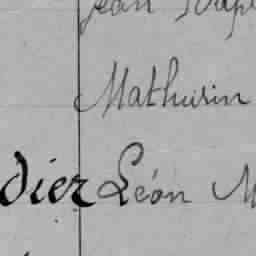 Jean
Mathurin
dier Léon M